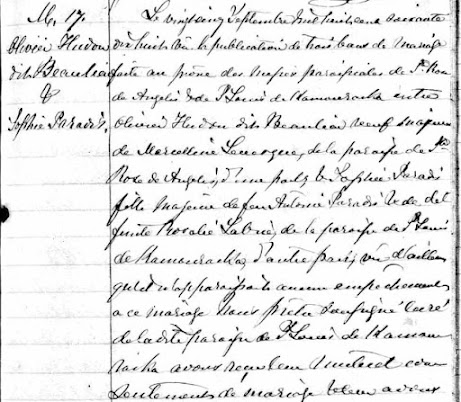 M. 17.
Olivier Hudon
dit Beaulieu
&
Sophie Paradis,
Le vingt cinq Septembre mil huit cent soixante
dix huit Vu la publication de trois bans de mariage
faite au prône des messes paroissiales de Ste Rose
de Angelis & de St Louis de Kamouraska entre
Olivier Hudon dit Beaulieu veuf majeur
de Marcelline Levesque, de la paroisse de Ste
Rose de Angelis, d'une part, & Sophie Paradis
fille majeure de Jean Antoine Paradis & de def
funte Rosalie Labrie, de la paroisse de St Louis
de Kamouraska, d'autre part, vu d'ailleurs
qu'il n'apparaissait aucun empechement
a ce mariage Nous pretre soussigné Curé
de la dite paroisse de St Louis de Kamou
raska avons reçu leur mutuel con
sentement de mariage & leur avons